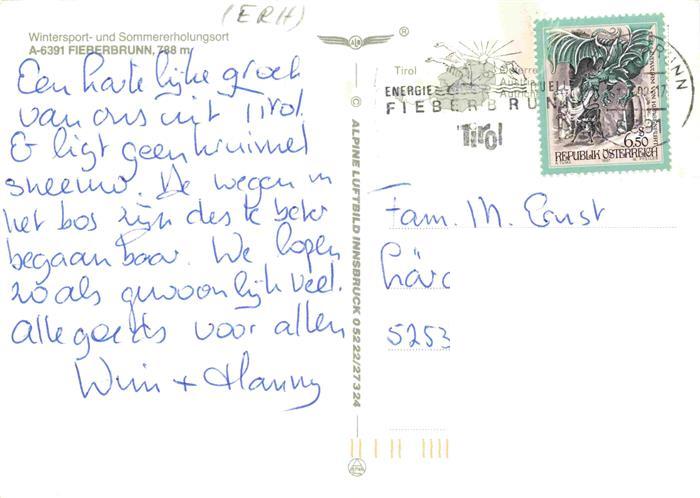 (ERH)
Wintersport- und Sommererholungsort
A-6391 FIEBERBRUNN, 788 m
Een hartelijke groet
van ons uit Tirol.
Er ligt geen kruimel
sneeuw. De wegen in
het bos zijn des te beter
begaanbaar. We lopen
zoals gewoonlijk veel.
alle goeds voor allen
Wim + Hanny
®
© ALPINE LUFTBILD INNSBRUCK 05222/27324
Tirol
ENERGIE
FIEBERBRUNN
Tirol
6.50
REPUBLIK ÖSTERREICH
Fam. M. Ernst
Lärc
5253